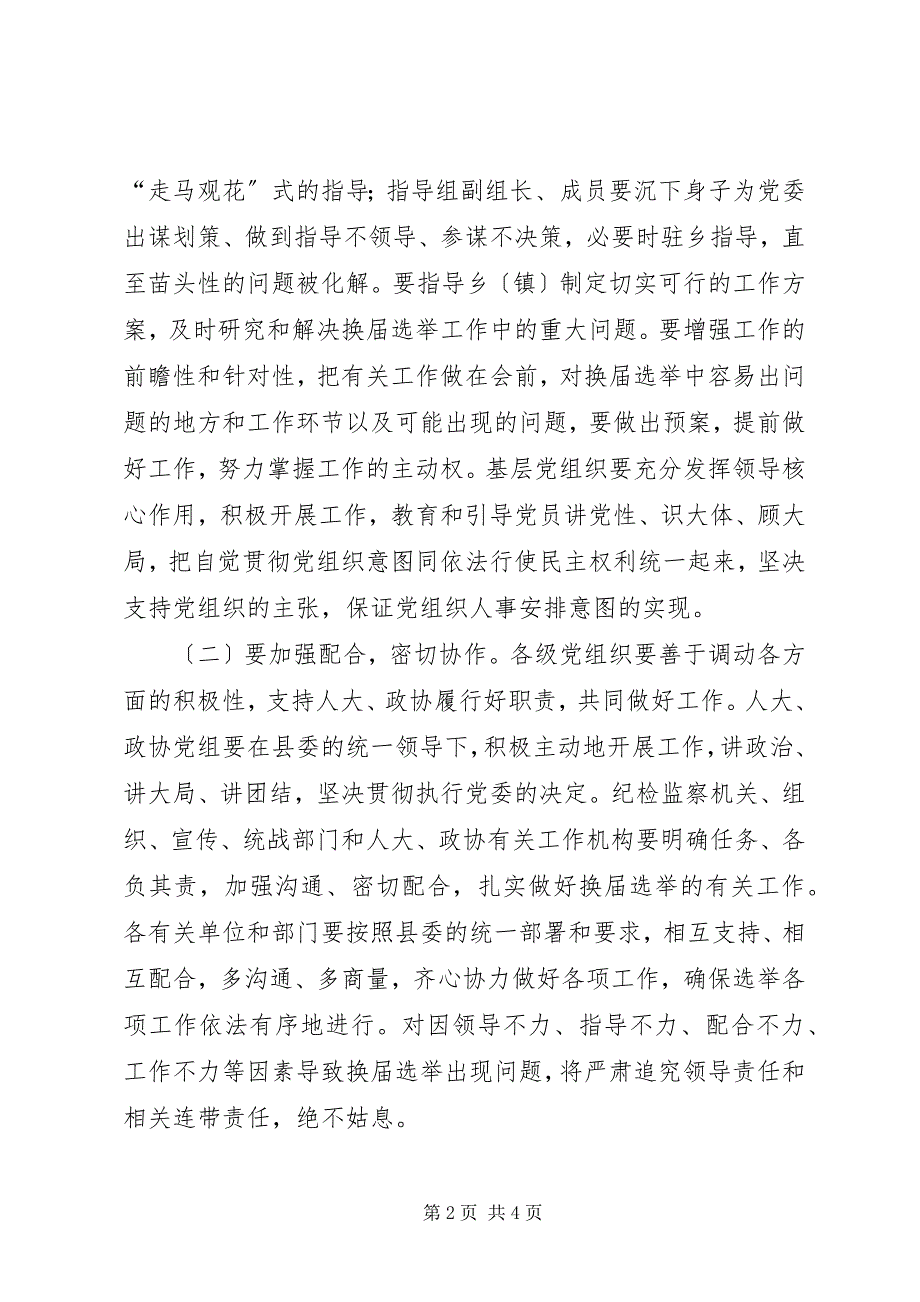 “走马观花〞式的指导；指导组副组长、成员要沉下身子为党委
出谋划策、做到指导不领导、参谋不决策，必要时驻乡指导，直
至苗头性的问题被化解。要指导乡〔镇〕制定切实可行的工作方
案，及时研究和解决换届选举工作中的重大问题。要增强工作的
前瞻性和针对性，把有关工作做在会前，对换届选举中容易出问
题的地方和工作环节以及可能出现的问题，要做出预案，提前做
好工作，努力掌握工作的主动权。基层党组织要充分发挥领导核
心作用，积极开展工作，教育和引导党员讲党性、识大体、顾大
局，把自觉贯彻党组织意图同依法行使民主权利统一起来，坚决
支持党组织的主张，保证党组织人事安排意图的实现。
〔二〕要加强配合，密切协作。各级党组织要善于调动各方
面的积极性，支持人大、政协履行好职责，共同做好工作。人大、
政协党组要在县委的统一领导下，积极主动地开展工作，讲政治、
讲大局、讲团结，坚决贯彻执行党委的决定。纪检监察机关、组
织、宣传、统战部门和人大、政协有关工作机构要明确任务、各
负其责，加强沟通、密切配合，扎实做好换届选举的有关工作。
各有关单位和部门要按照县委的统一部署和要求，相互支持、相
互配合，多沟通、多商量，齐心协力做好各项工作，确保选举各
项工作依法有序地进行。对因领导不力、指导不力、配合不力、
工作不力等因素导致换届选举出现问题，将严肃追究领导责任和
相关连带责任，绝不姑息。
第 2 页 共 4 页